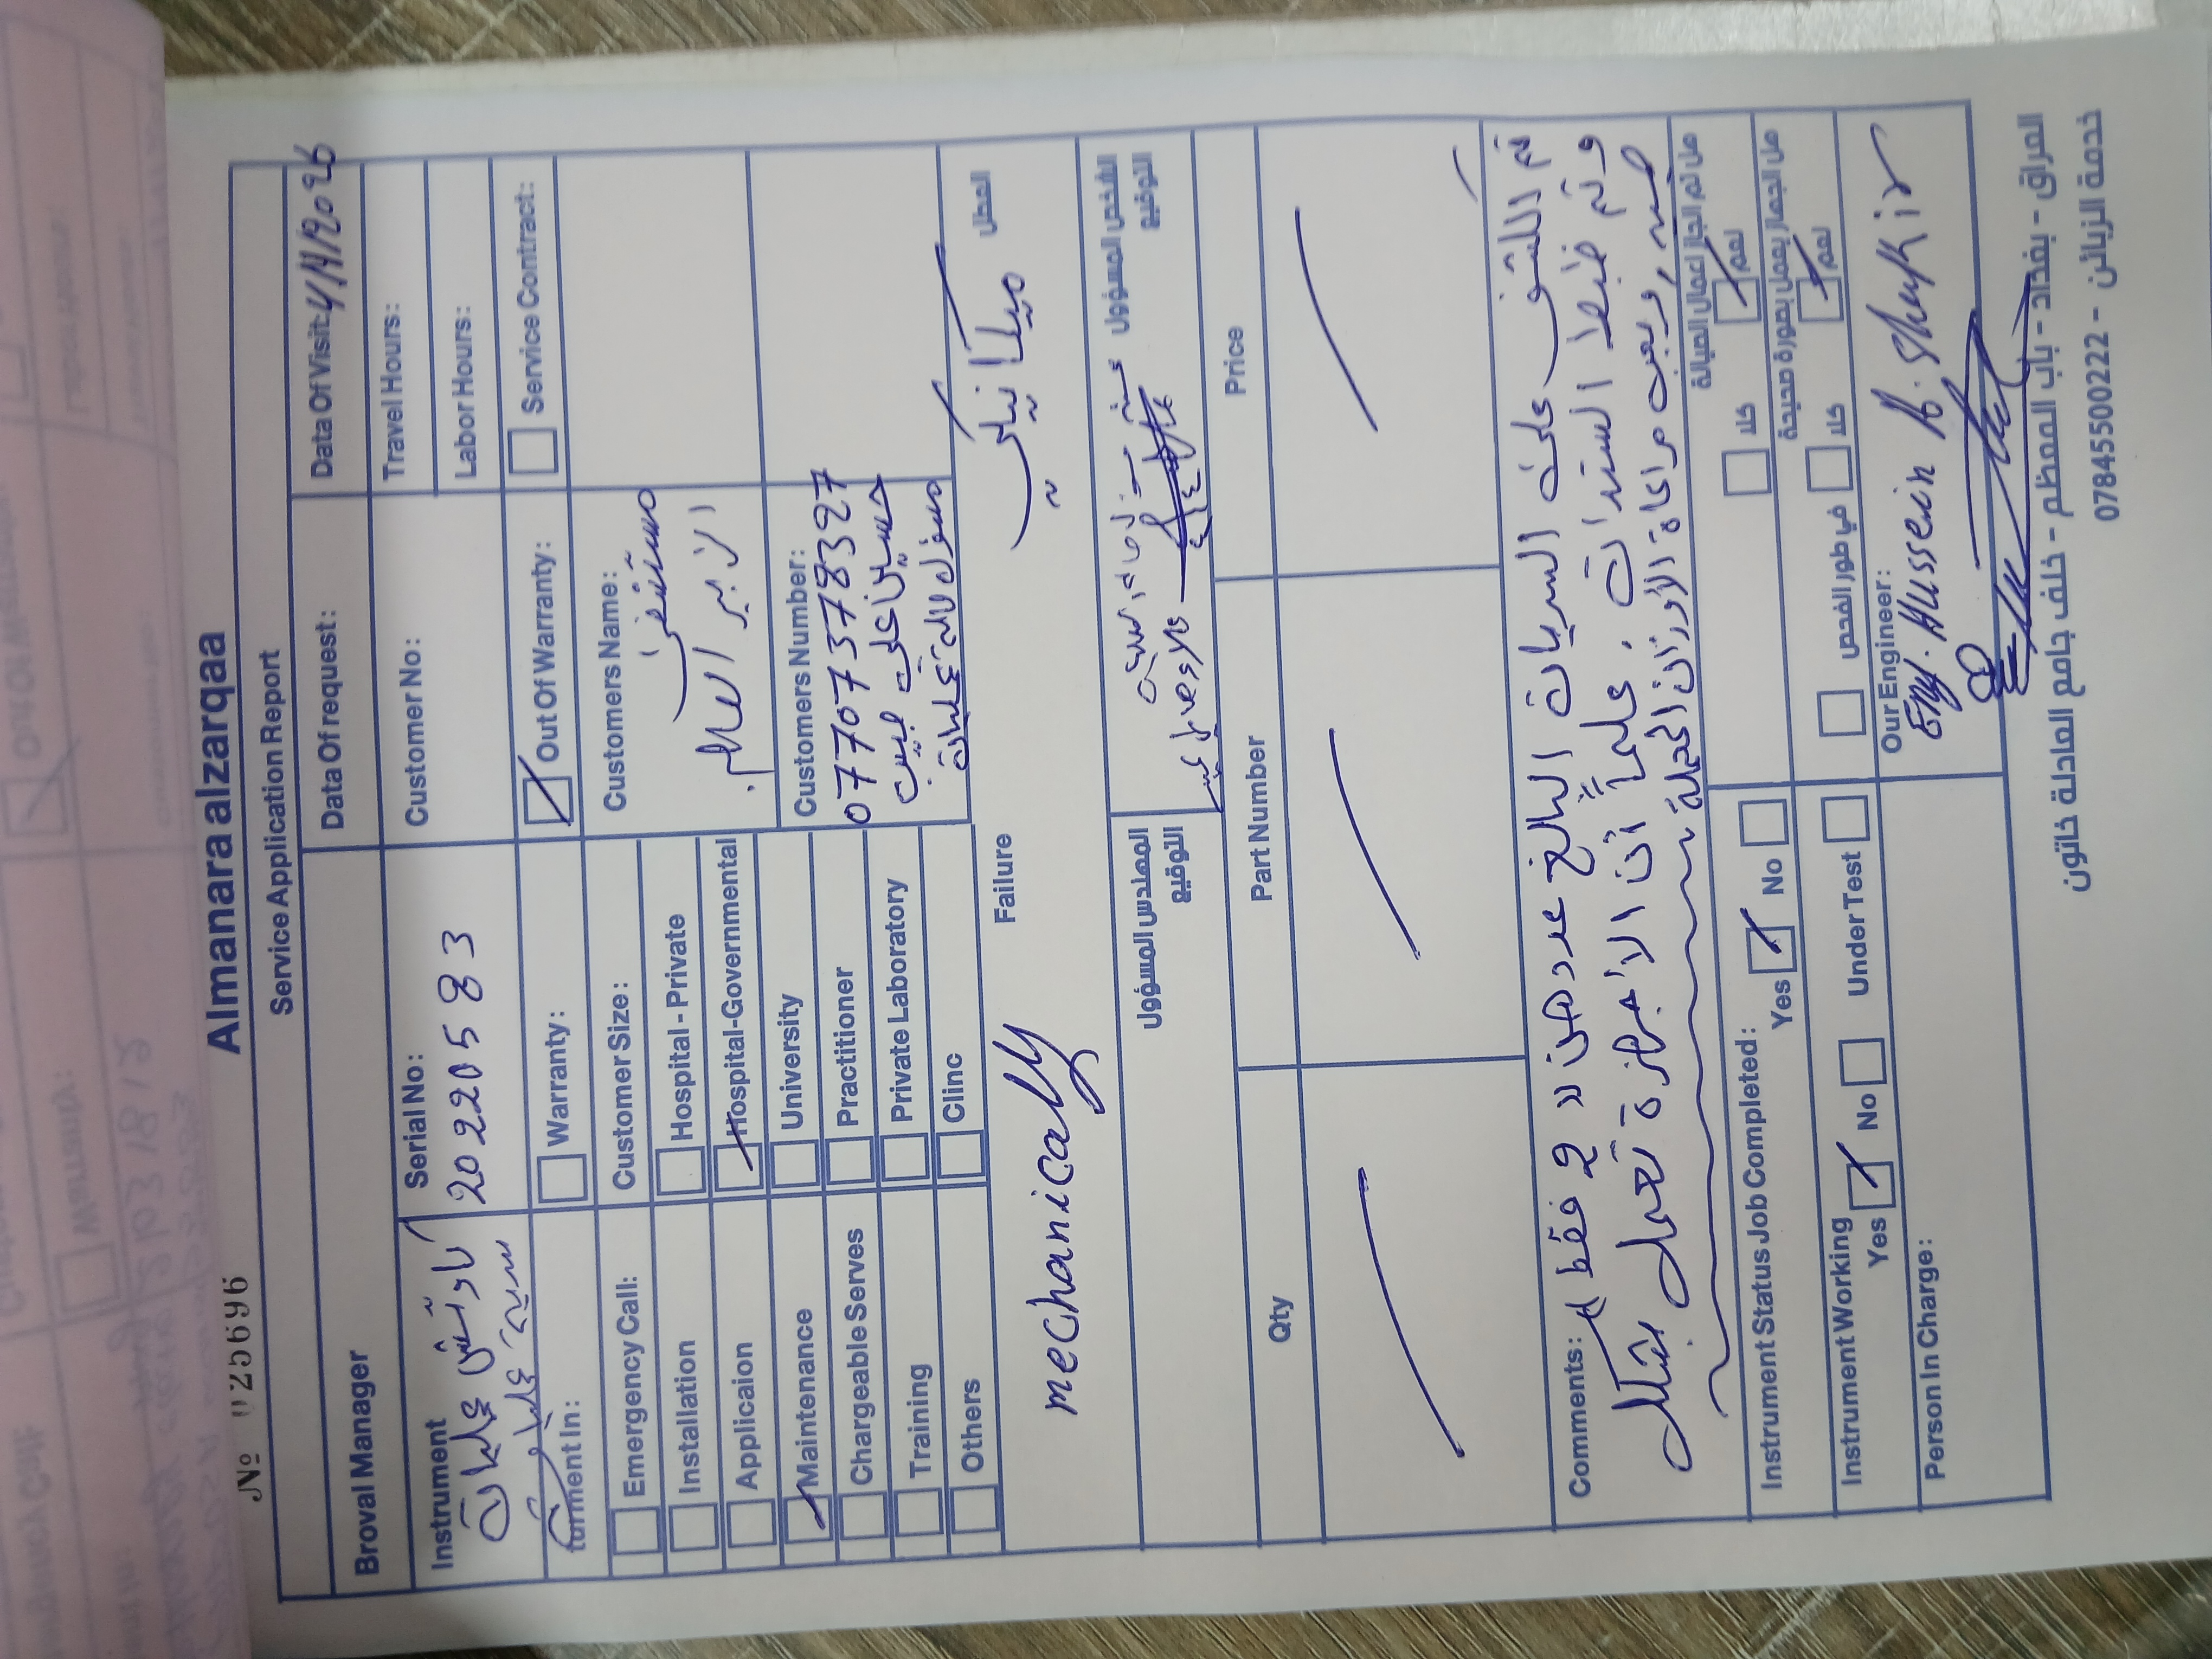 Almanara alzarqaa
№ 025696
Service Application Report
Data Of request:
Data Of Visit: 4/4/2026
Broval Manager
Customer No:
Travel Hours:
Labor Hours:
Instrument
كاونتش عمليات
سرير عمليات
Serial No:
20220583
turment In:
Warranty:
Out Of Warranty:
Service Contract:
Emergency Call:
Installation
Applicaion
Maintenance
Chargeable Serves
Training
Others
Customer Size:
Hospital - Private
Hospital-Governmental
University
Practitioner
Private Laboratory
Clinc
Customers Name:
مستشفى
الامير العام
Customers Number:
07707378327
حسين علي حبيب
مسؤول صالة عمليات
Failure
العطل
mechanically
ميكانيكي
المهندس المسؤول
التوقيع
الشخص المسؤول
التوقيع
Qty
Part Number
Price
Comments:
تم الكشف على السريات البالغ عددهن 2 فقط
وتم ضبط السندات، علماً أن الأجهزة تعمل بشكل
جيد ويجب مراعاة الأوزان المحملة
Instrument Status Job Completed:
Yes
No
هل تم انجاز اعمال الصيانة
كلا
نعم
Instrument Working
Yes
No
Under Test
هل الجهاز يعمل بصورة صحيحة
في طور الفحص
كلا
نعم
Person In Charge:
Our Engineer:
Eng. Hussein A. Shakir
العراق - بغداد - باب المعظم - خلف جامع العادلة خاتون
خدمة الزبائن - 07845500222